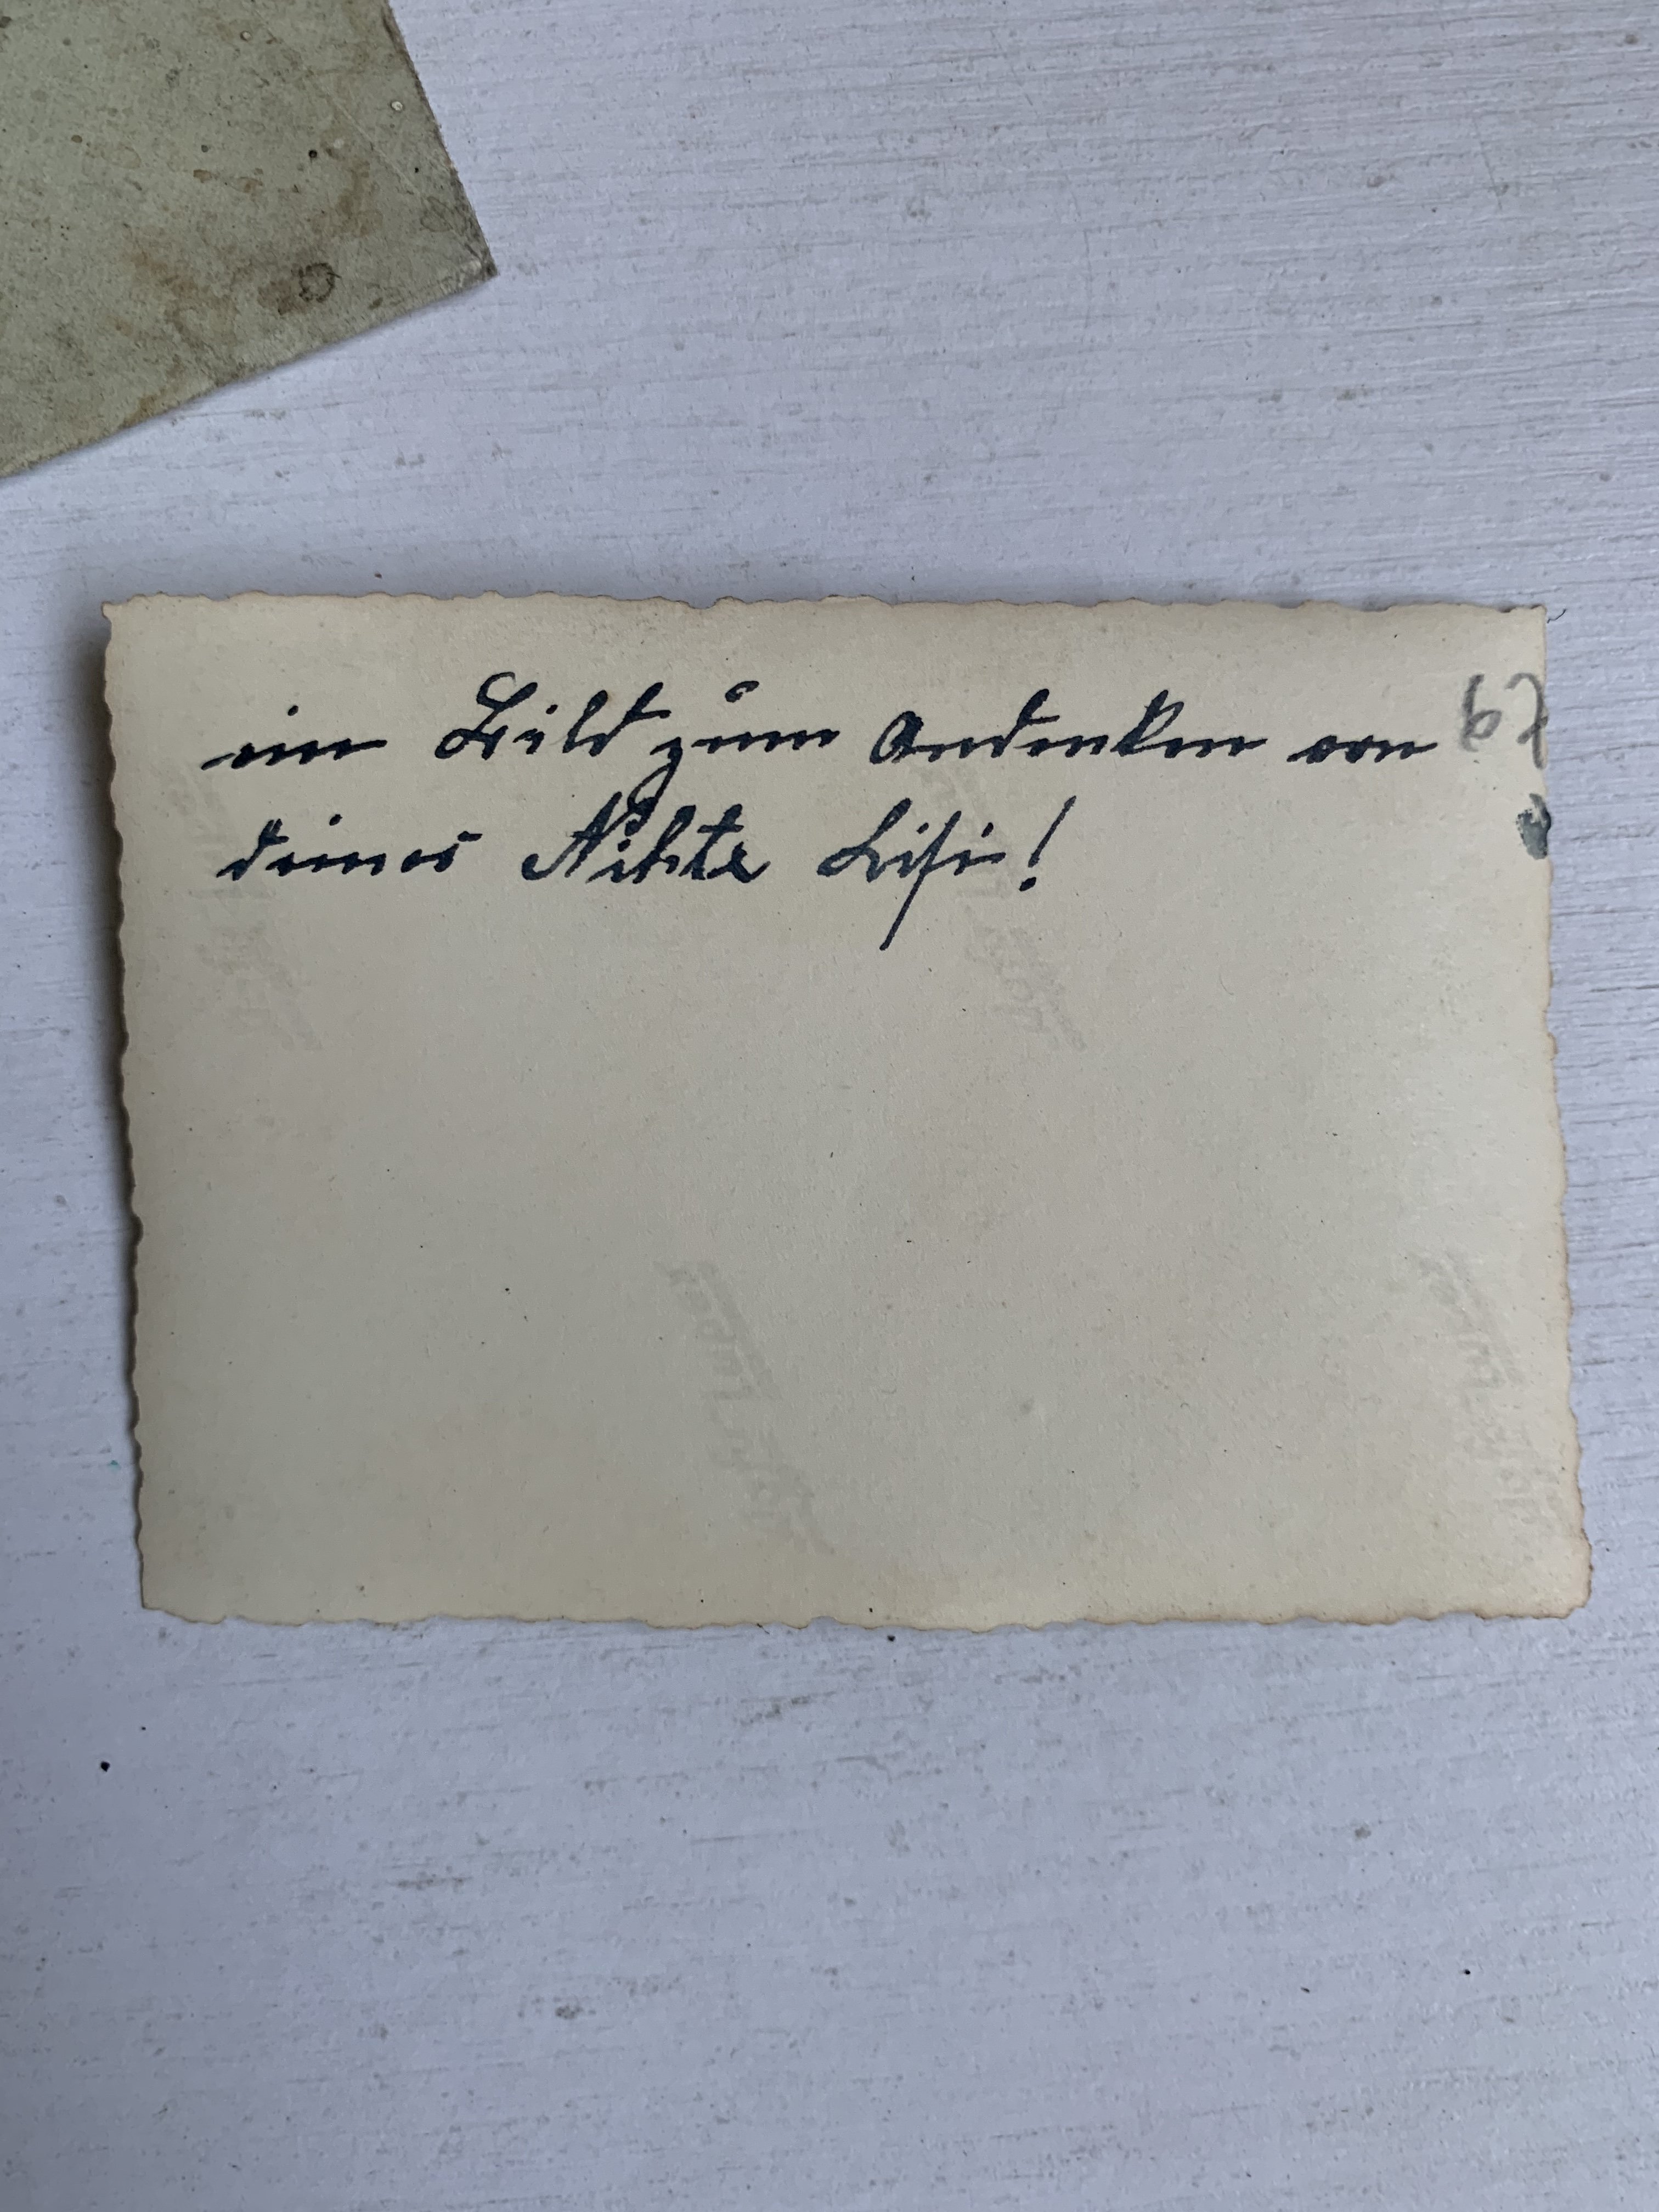 ein Bild zum Andenken von
deiner Nihte Lisi!